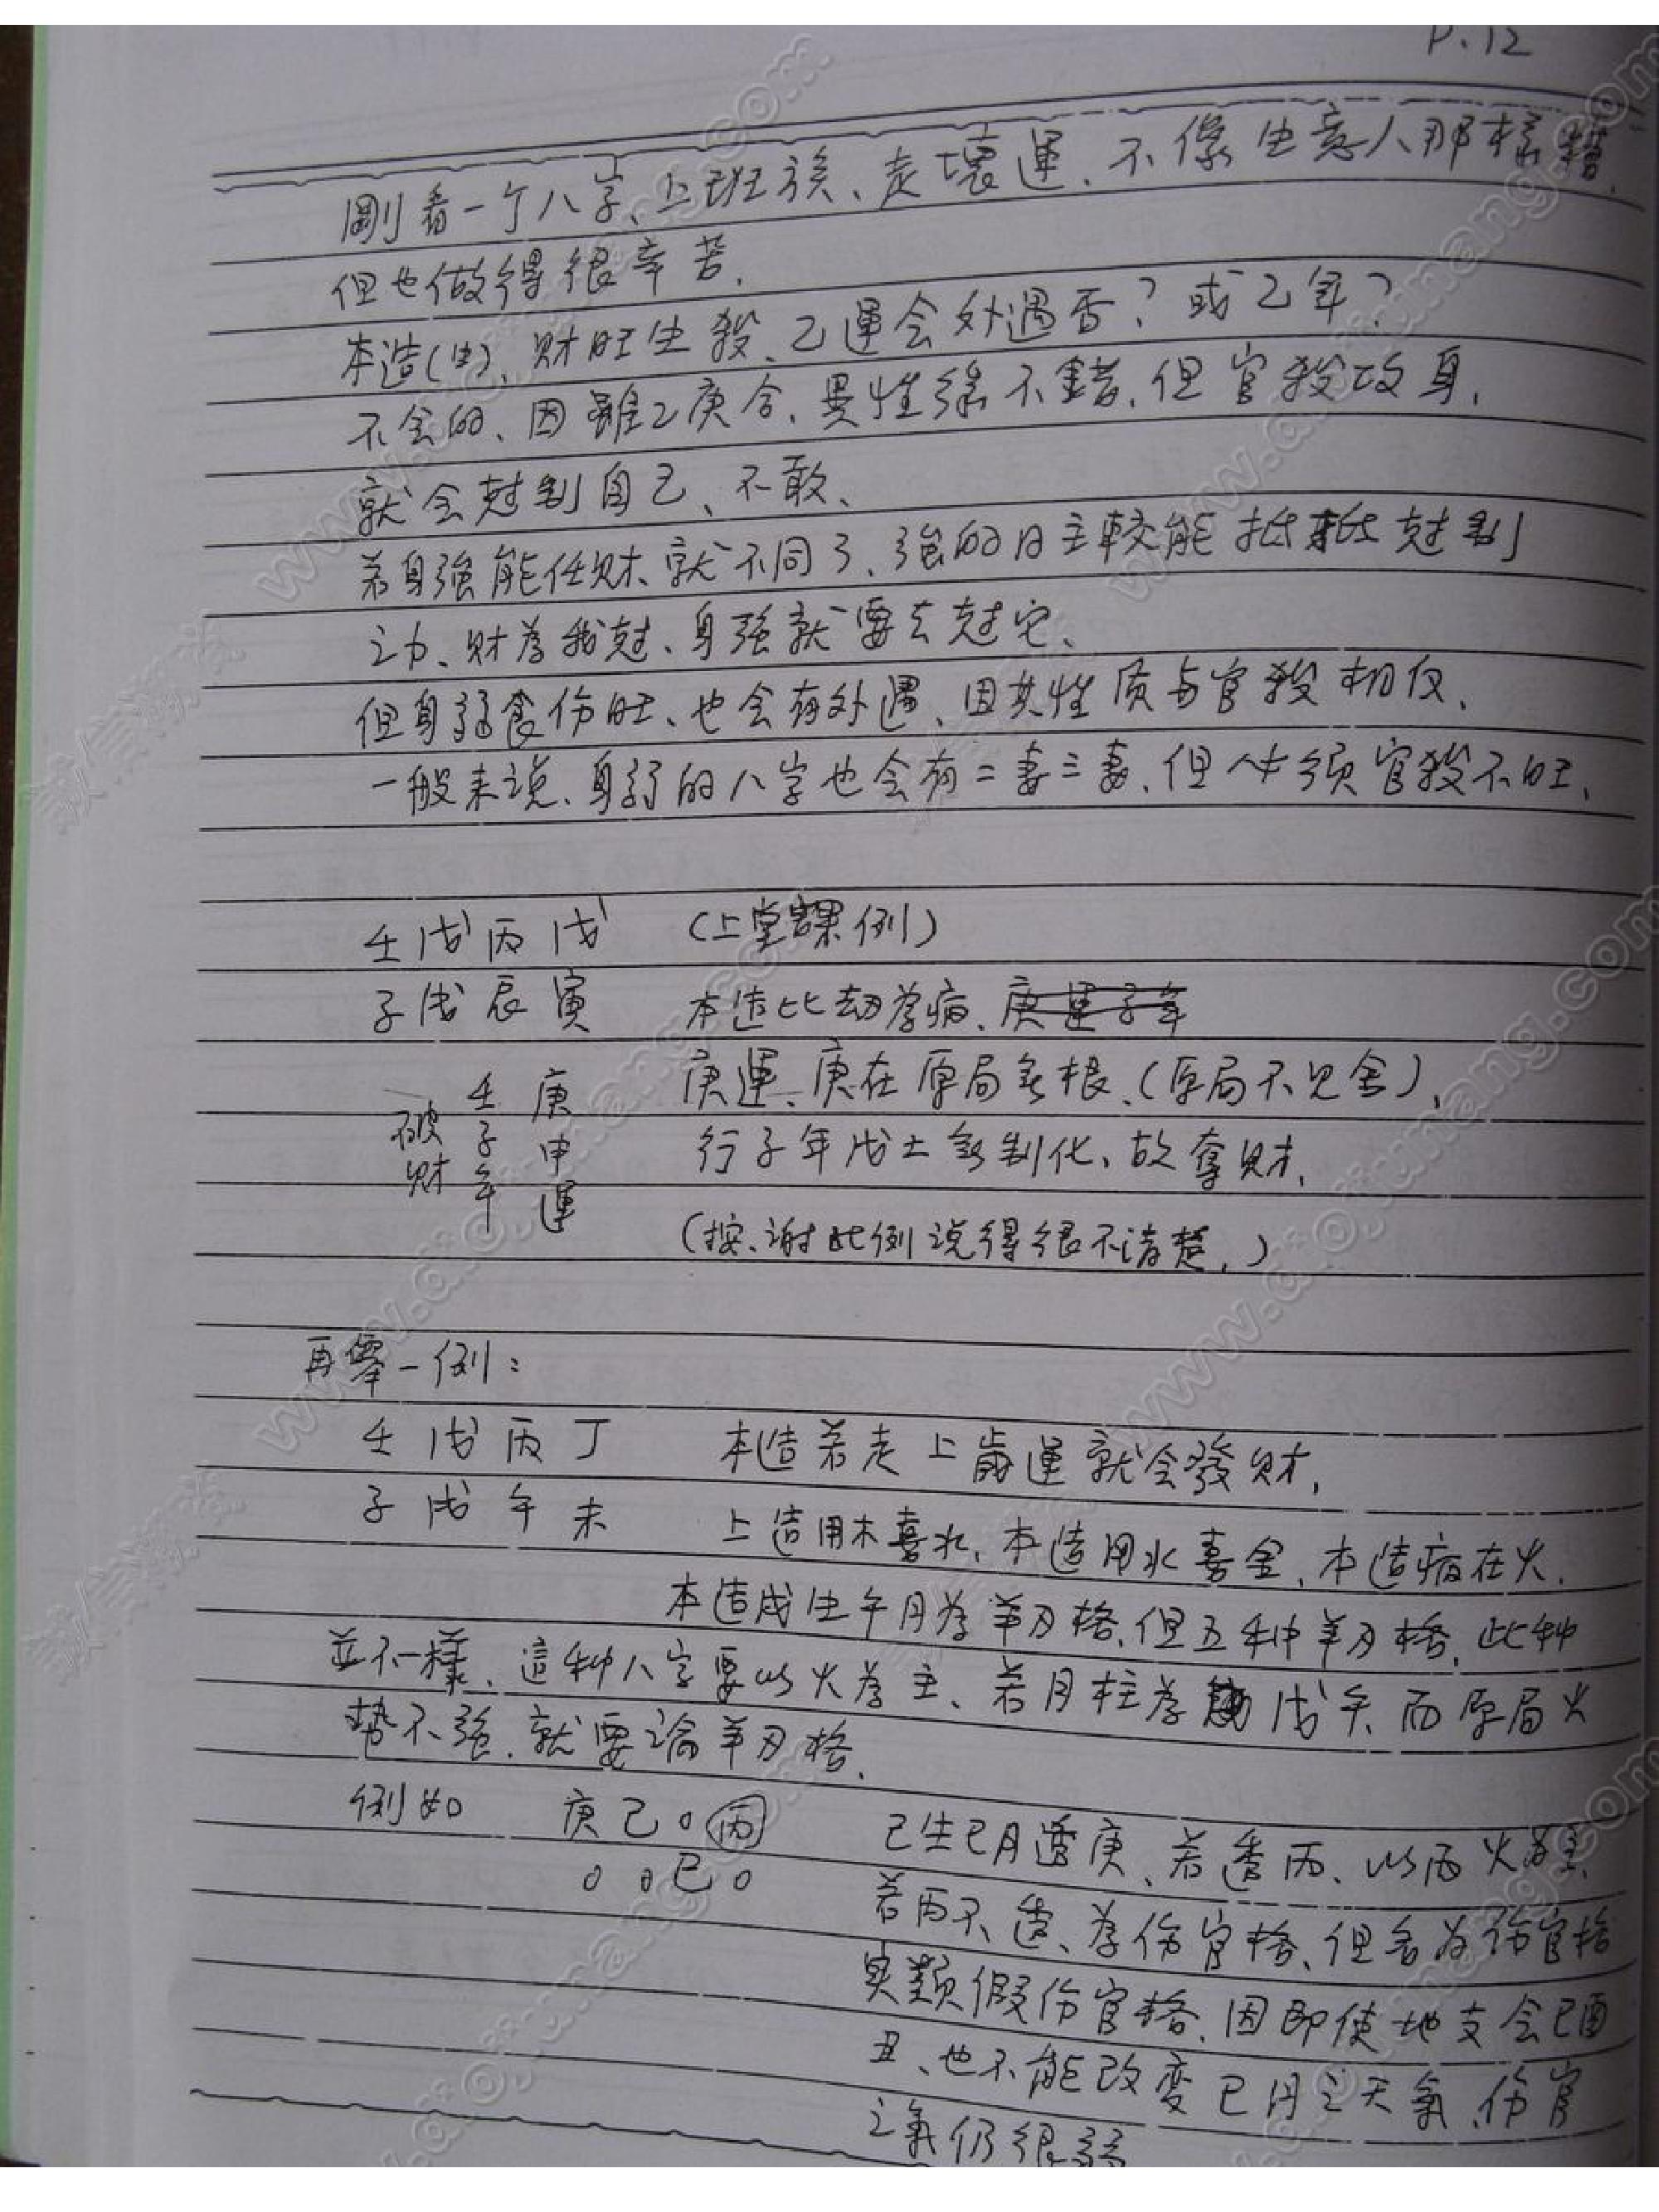 P.12
剛看一个八字、上班族、走壞運、不像生意人那樣糟、
但也做得很辛苦.
本造(申)、财旺生殺、乙運会外遇否？或乙年？
不会的、因雖乙庚合、異性緣不錯、但官殺攻身、
就会尅制自己、不敢、
若身強能任财、就不同了、強的日主較能抵抵尅制
之力、财為我尅、身強就要去尅它、
但身弱食伤旺、也会有外遇、因其性质与官殺相仅、
一般来说、身弱的八字也会有二妻三妻、但必須官殺不旺、
壬戊丙戊 (上堂課例)
子戌辰寅 本造比劫為病、庚運子年
庚運、庚在原局無根、(原局不见金)、
庚申運 壬子年 破财
行子年戊土無制化、故奪财、
(按、谢此例说得很不清楚、)
再舉一例：
壬戊丙丁 本造若走上歲運就会發财、
子戌午未 上造用木喜水、本造用水喜金、本造病在火、
本造戊生午月為羊刃格、但五种羊刃格、此种
並不一樣、這种八字要以火為主、若月柱為戊午、而原局火
势不強、就要論羊刃格、
例如 庚己0丙 己生巳月透庚、若透丙、以丙火為主、
00巳0
若丙不透、為伤官格、但名為伤官格
実類假伤官格、因即使地支会巳酉
丑、也不能改変巳月之天氣、伤官
之氣仍很弱
www.daojunang.com
誠信淘奈